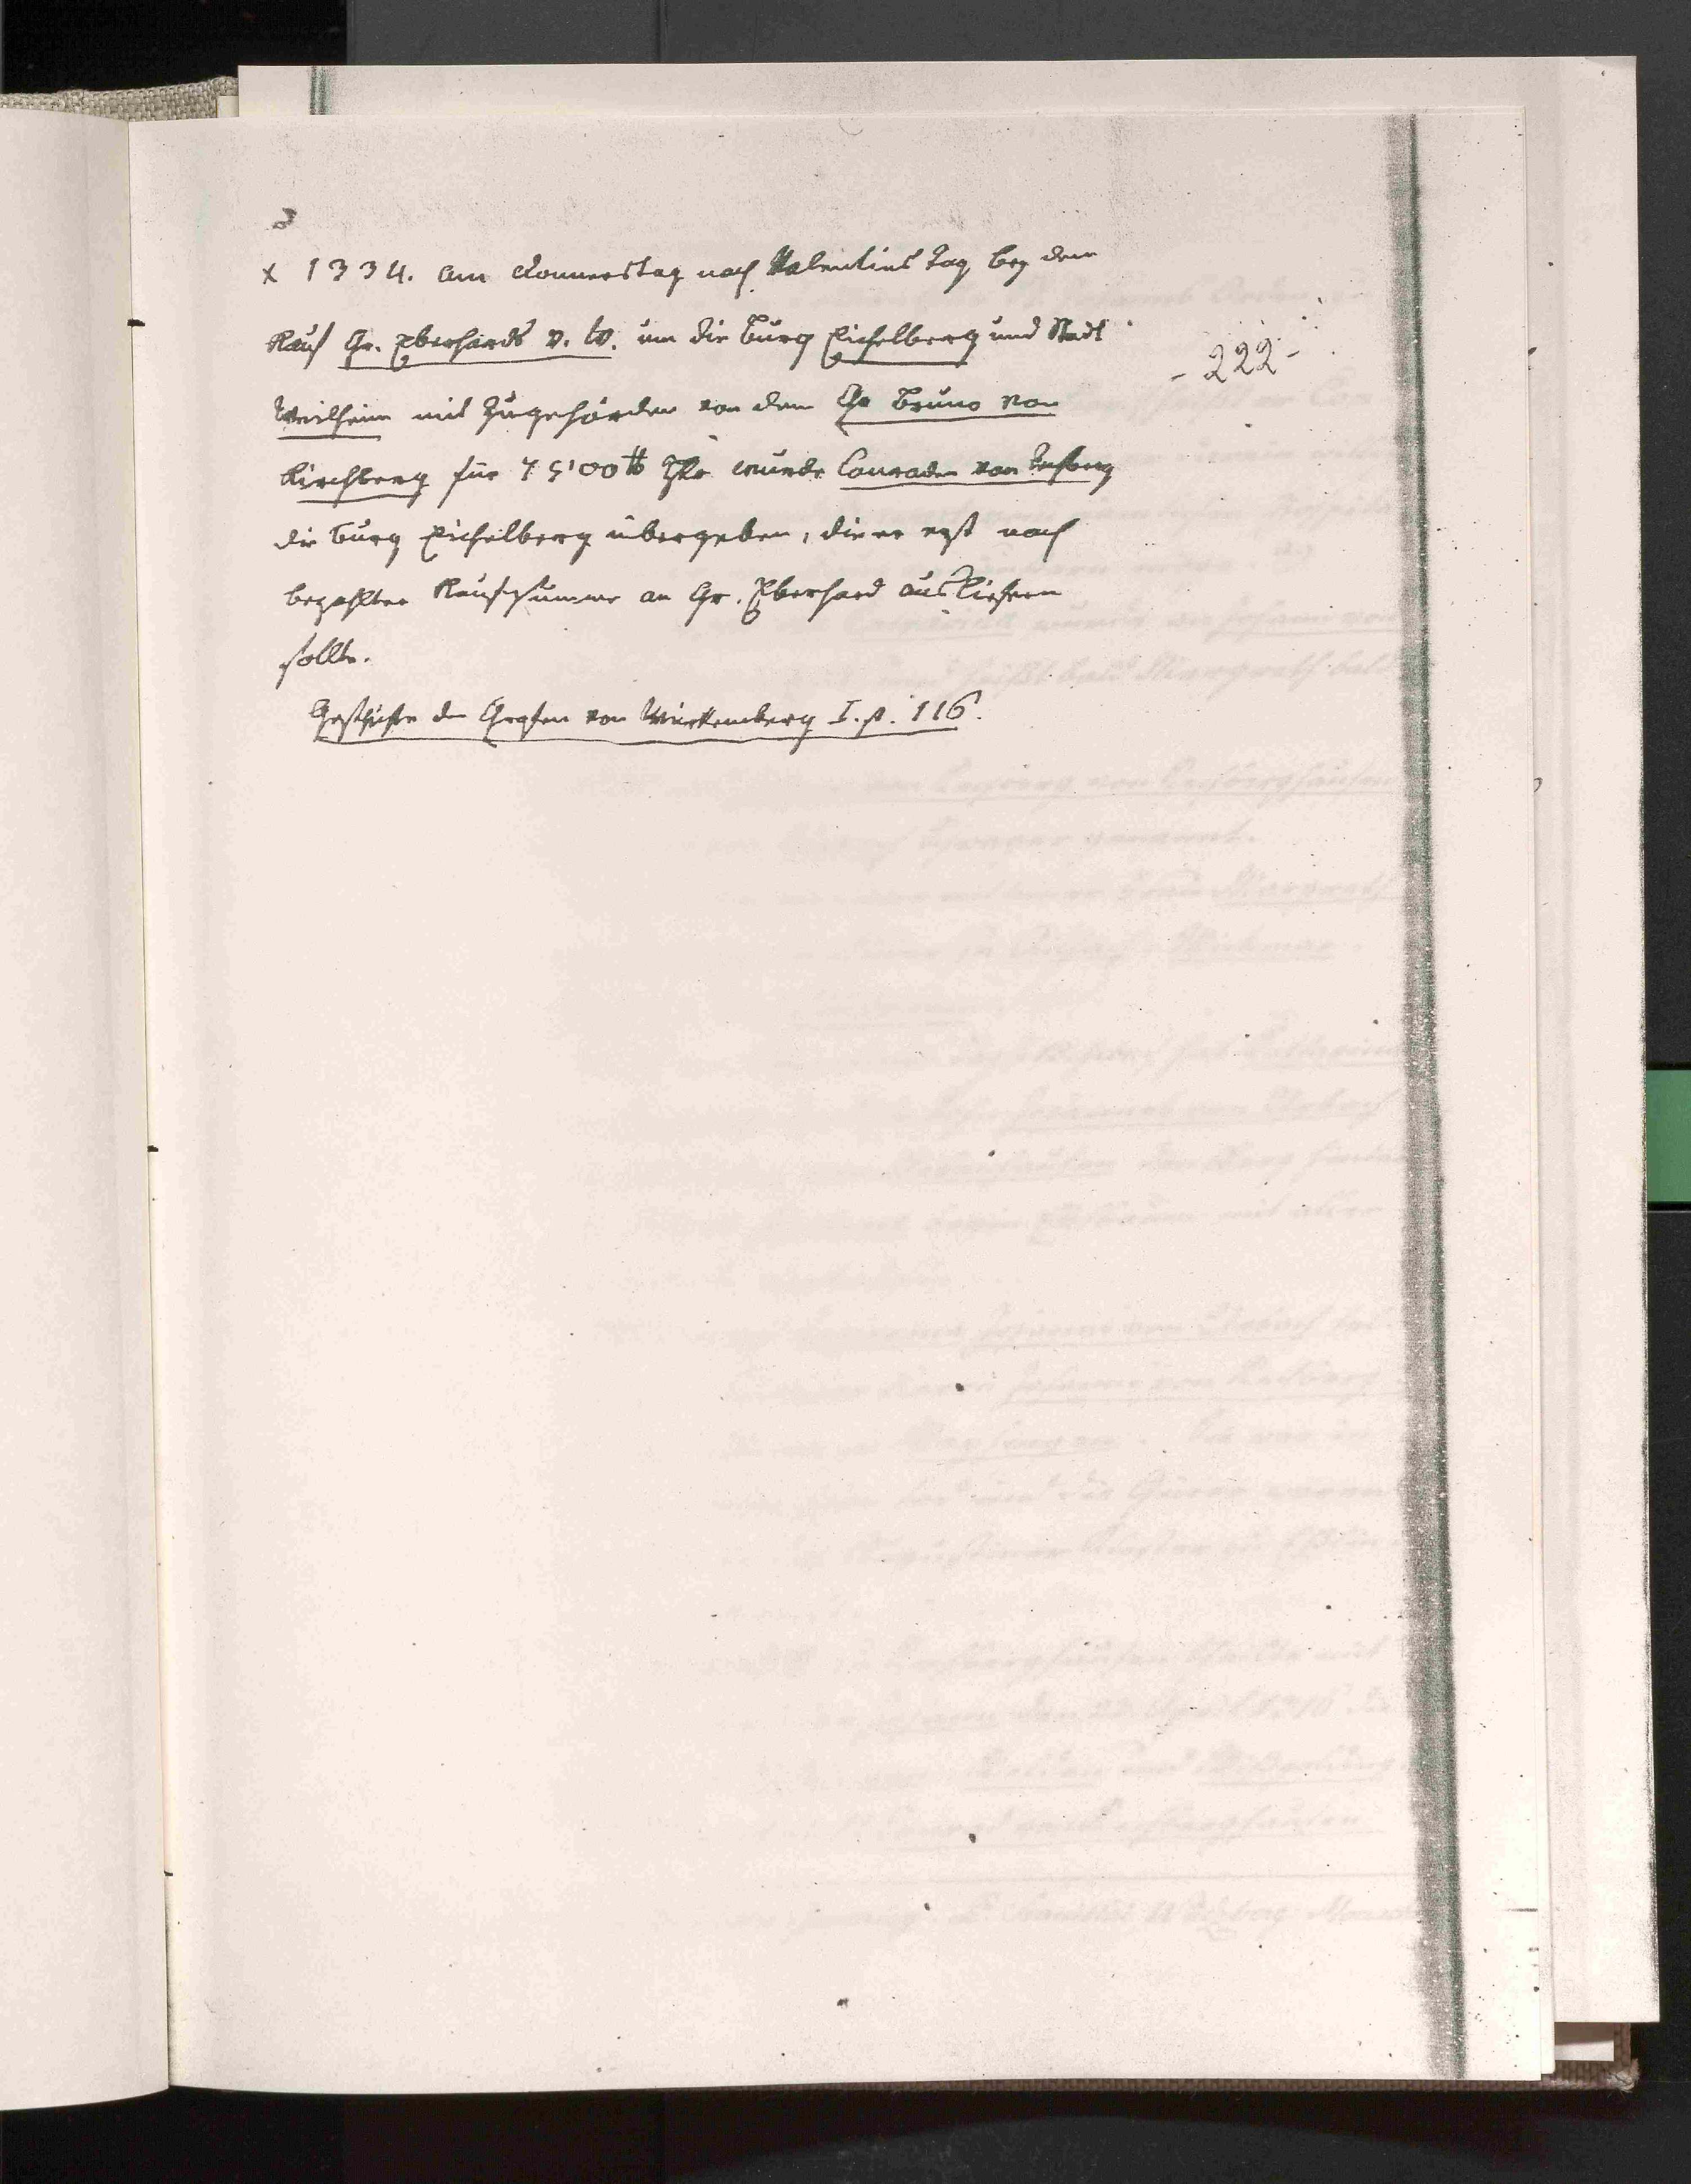 3
x 1334. am Donnerstag nach Valentins Tag bey dem
Kauf Gr. Eberhards v. W. um die Burg Eichelberg und Stadt
- 222 -
Weilheim mit Zugehörden von dem Gr Bruno von
Kirchberg für 7500 ℔ Hlr wurde Conraden von Rechberg
die Burg Eichelberg übergeben, die er erst nach
bezahlter Kaufsumme an Gr. Eberhard ausliefern
sollte.
Geschichte der Grafen von Würtemberg I. p. 116.